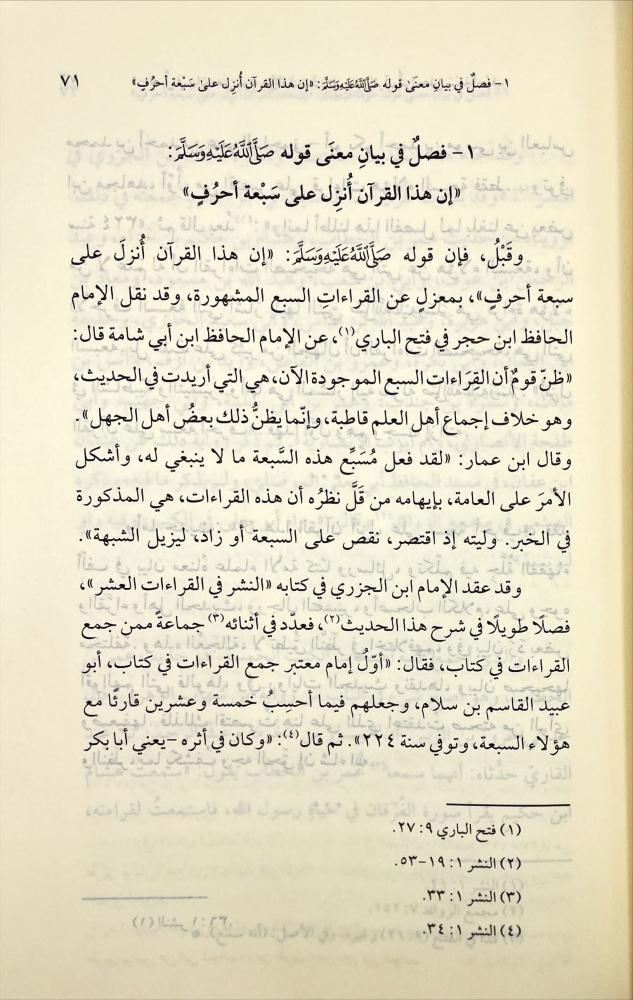 ١- فصلٌ في بيانِ معنَىٰ قوله صَلَّىٰاللَّهُعَلَيْهِوَسَلَّمَ: «إن هذا القرآن أُنزِل علىٰ سَبْعة أحرُفٍ»
٧١
١- فصلٌ في بيانِ معنَى قوله صَلَّىٰاللَّهُعَلَيْهِوَسَلَّمَ:
«إن هذا القرآن أُنزِل على سَبْعة أحرُفٍ»
وقَبْلُ، فإن قوله صَلَّىٰاللَّهُعَلَيْهِوَسَلَّمَ: «إن هذا القرآن أُنزلَ على
سبعة أحرفٍ»، بمعزلٍ عن القراءاتِ السبع المشهورة، وقد نقل الإمام
الحافظ ابن حجر في فتح الباري(١)، عن الإمام الحافظ ابن أبي شامة قال:
«ظنّ قومٌ أن القِرَاءات السبع الموجودة الآن، هي التي أريدت في الحديث،
وهو خلاف إجماع أهل العلم قاطبة، وإنّما يظنُّ ذلك بعضُ أهل الجهل».
وقال ابن عمار: «لقد فعل مُسَبِّع هذه السَّبعة ما لا ينبغي له، وأشكل
الأمرَ على العامة، بإيهامه من قَلَّ نظرُه أن هذه القراءات، هي المذكورة
في الخبر. وليته إذ اقتصر، نقص على السبعة أو زاد، ليزيل الشبهة».
وقد عقد الإمام ابن الجزري في كتابه «النشر في القراءات العشر»،
فصلًا طويلًا في شرح هذا الحديث(٢)، فعدّد في أثنائه(٣) جماعةً ممن جمع
القراءات في كتاب، فقال: «أوّلُ إمام معتبر جمع القراءات في كتاب، أبو
عبيد القاسم بن سلام، وجعلهم فيما أحسِبُ خمسة وعشرين قارئًا مع
هؤلاء السبعة، وتوفي سنة ٢٢٤». ثم قال(٤): «وكان في أثره -يعني أبا بكر
(١) فتح الباري ٩: ٢٧.
(٢) النشر ١: ١٩-٥٣.
(٣) النشر ١: ٣٣.
(٤) النشر ١: ٣٤.